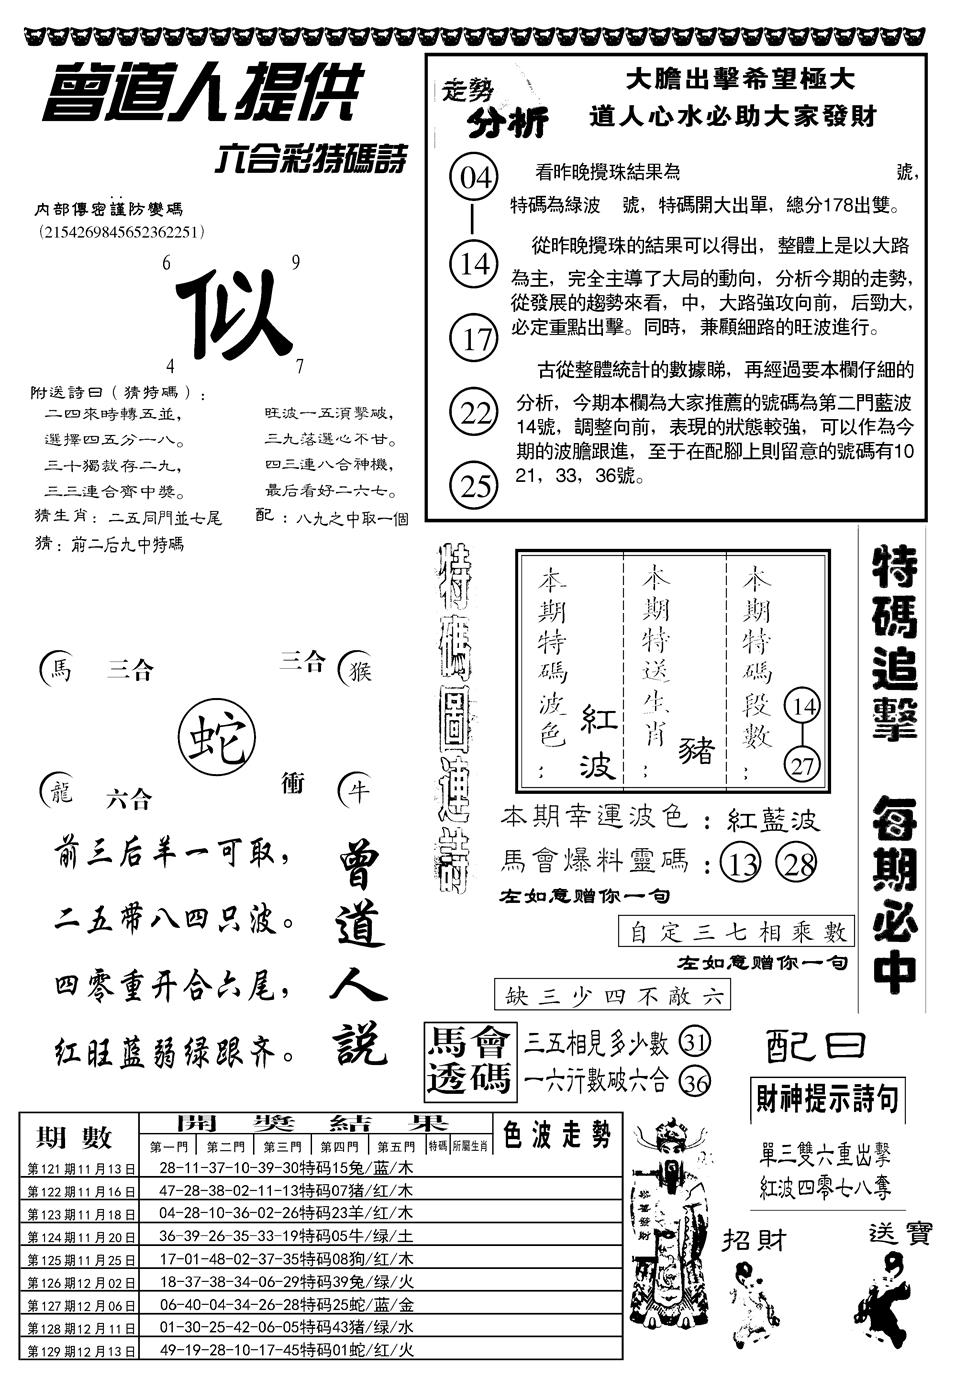 曾道人提供
六合彩特碼詩
內部傳密謹防變碼
（2154269845652362251）
6 9
似
4 7
附送詩曰（猜特碼）：
二四來時轉五並，
選擇四五分一八。
三十獨裁存二九，
三三連合齊中獎。
旺波一五須擊破，
三九落選心不甘。
四三連八合神機，
最后看好二六七。
猜生肖：二五同門並七尾
配：八九之中取一個
猜：前二后九中特碼
走勢
分析
大膽出擊希望極大
道人心水必助大家發財
04
14
17
22
25
看昨晚攪珠結果為 號，
特碼為綠波 號，特碼開大出單，總分178出雙。
從昨晚攪珠的結果可以得出，整體上是以大路
為主，完全主導了大局的動向，分析今期的走勢，
從發展的趨勢來看，中，大路強攻向前，后勁大，
必定重點出擊。同時，兼顧細路的旺波進行。
古從整體統計的數據睇，再經過要本欄仔細的
分析，今期本欄為大家推薦的號碼為第二門藍波
14號，調整向前，表現的狀態較強，可以作為今
期的波膽跟進，至于在配腳上則留意的號碼有10
21，33，36號。
馬 三合
三合 猴
蛇
龍 六合
衝 牛
前三后羊一可取，
二五带八四只波。
四零重开合六尾，
红旺蓝弱绿跟齐。
曾道人説
特碼圖連詩
本期特碼波色：
紅波
本期特送生肖：
豬
本期特碼段數：
14
27
本期幸運波色：紅藍波
馬會爆料靈碼：13 28
左如意赠你一句
自定三七相乘數
左如意赠你一句
缺三少四不敵六
特碼追擊 每期必中
馬會
透碼
三五相見多少數 31
一六行數破六合 36
配曰
財神提示詩句
單三雙六重出擊
紅波四零七八奪
恭喜發財
招財
送寶
期數 開獎結果 色波走勢
第一門 第二門 第三門 第四門 第五門 特碼 所屬生肖
第121期11月13日 28-11-37-10-39-30特码15兔/蓝/木
第122期11月16日 47-28-38-02-11-13特码07猪/红/木
第123期11月18日 04-28-10-36-02-26特码23羊/红/木
第124期11月20日 36-39-26-35-33-19特码05牛/绿/土
第125期11月25日 17-01-48-02-37-35特码08狗/红/木
第126期12月02日 18-37-38-34-06-29特码39兔/绿/火
第127期12月06日 06-40-04-34-26-28特码25蛇/蓝/金
第128期12月11日 01-30-25-42-06-05特码43猪/绿/水
第129期12月13日 49-19-28-10-17-45特码01蛇/红/火